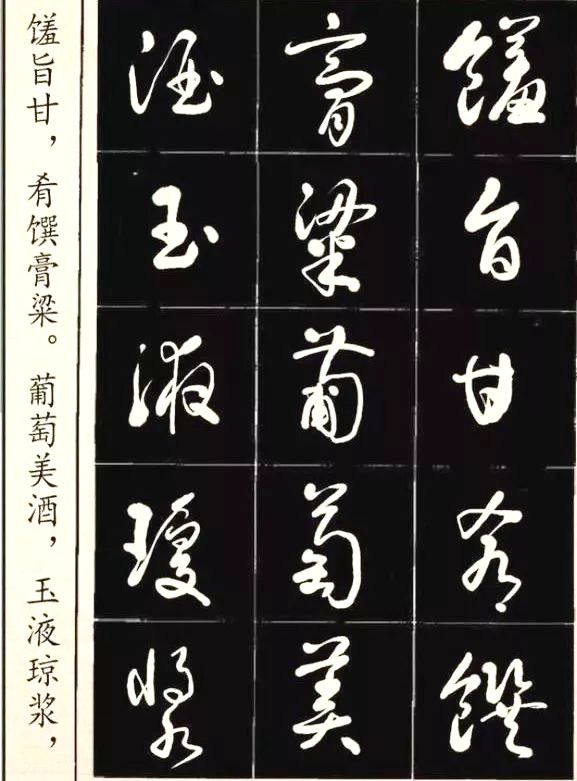 饈旨甘肴饌
膏粱葡萄美
酒玉液瓊漿
馐旨甘，肴馔膏粱。葡萄美酒，玉液琼浆，